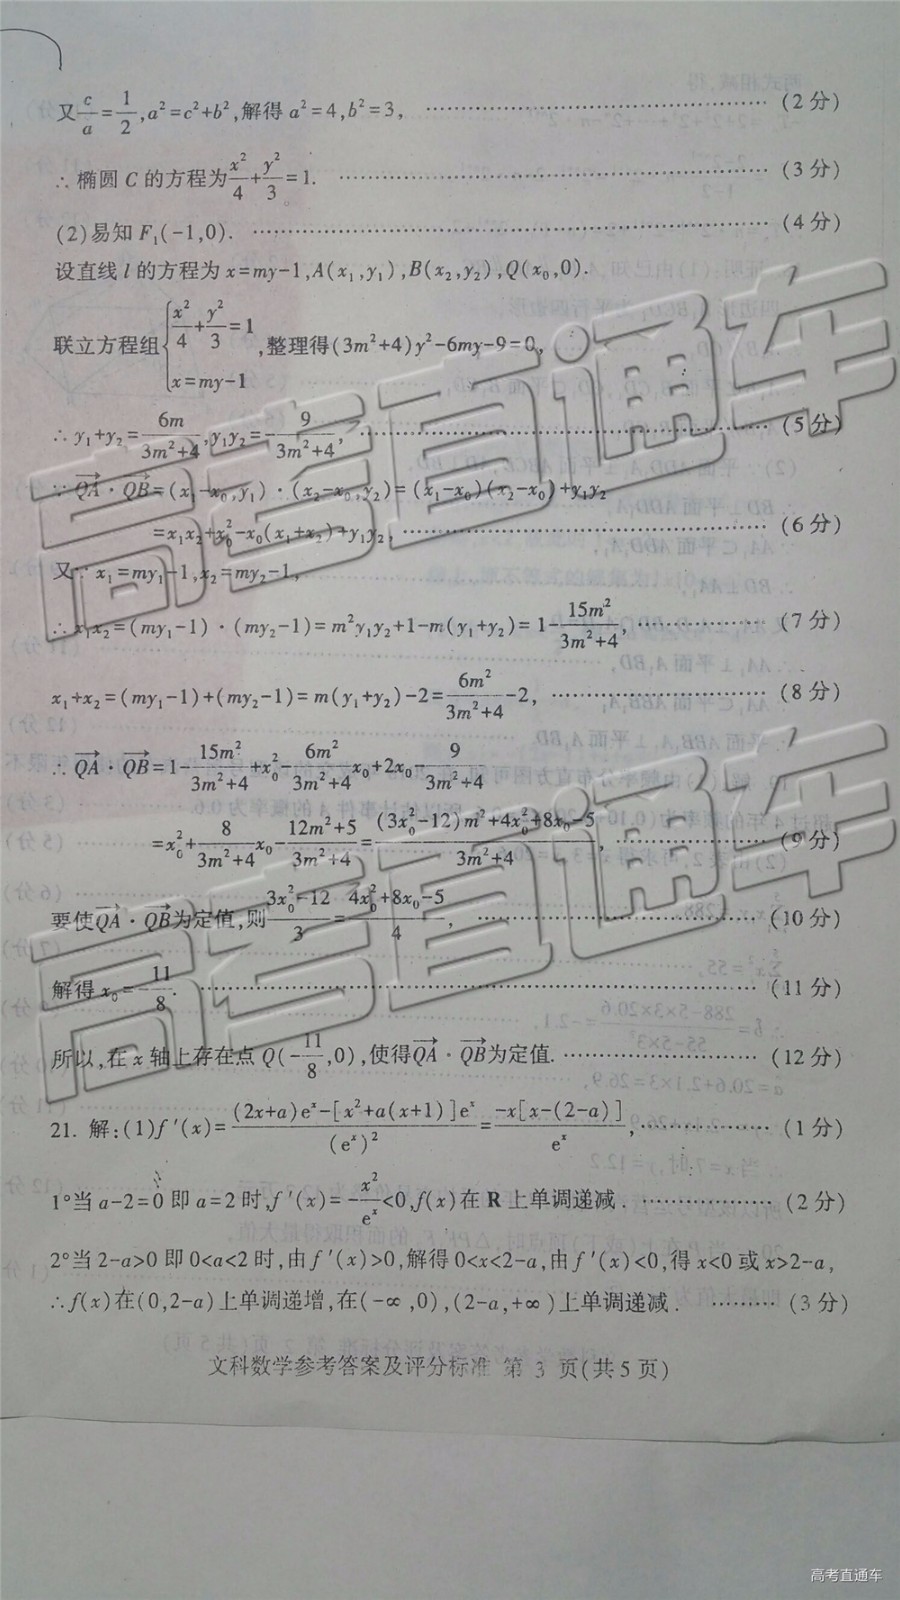 又c/a=1/2,a²=c²+b²,解得 a²=4,b²=3, ……(2分)
∴ 椭圆 C 的方程为x²/4+y²/3=1. ……(3分)
(2)易知 F₁(-1,0). ……(4分)
设直线 l 的方程为 x=my-1,A(x₁,y₁),B(x₂,y₂),Q(x₀,0).
联立方程组{x²/4+y²/3=1, x=my-1,整理得(3m²+4)y²-6my-9=0,
∴ y₁+y₂=6m/(3m²+4),y₁y₂=-9/(3m²+4), ……(5分)
∵ QA→·QB→=(x₁-x₀,y₁)·(x₂-x₀,y₂)=(x₁-x₀)(x₂-x₀)+y₁y₂
=x₁x₂+x₀²-x₀(x₁+x₂)+y₁y₂, ……(6分)
又∵ x₁=my₁-1,x₂=my₂-1,
∴ x₁x₂=(my₁-1)·(my₂-1)=m²y₁y₂+1-m(y₁+y₂)=1-15m²/(3m²+4), ……(7分)
x₁+x₂=(my₁-1)+(my₂-1)=m(y₁+y₂)-2=6m²/(3m²+4)-2, ……(8分)
∴ QA→·QB→=1-15m²/(3m²+4)+x₀²-6m²/(3m²+4)x₀+2x₀-9/(3m²+4)
=x₀²+8/(3m²+4)x₀-(12m²+5)/(3m²+4)=((3x₀²-12)m²+4x₀²+8x₀-5)/(3m²+4), ……(9分)
要使QA→·QB→为定值,则(3x₀²-12)/3=(4x₀²+8x₀-5)/4, ……(10分)
解得 x₀=-11/8. ……(11分)
所以,在 x 轴上存在点 Q(-11/8,0),使得QA→·QB→为定值. ……(12分)
21. 解:(1)f′(x)=((2x+a)eˣ-[x²+a(x+1)]eˣ)/(eˣ)²=-x[x-(2-a)]/eˣ, ……(1分)
1°当 a-2=0 即 a=2 时,f′(x)=-x²/eˣ<0,f(x)在 R 上单调递减. ……(2分)
2°当 2-a>0 即 0<a<2 时,由 f′(x)>0,解得 0<x<2-a,由 f′(x)<0,得 x<0 或 x>2-a,
∴ f(x)在(0,2-a)上单调递增,在(-∞,0),(2-a,+∞)上单调递减. ……(3分)
文科数学参考答案及评分标准 第 3 页(共5页)
高考直通车
高考直通车
高考直通车